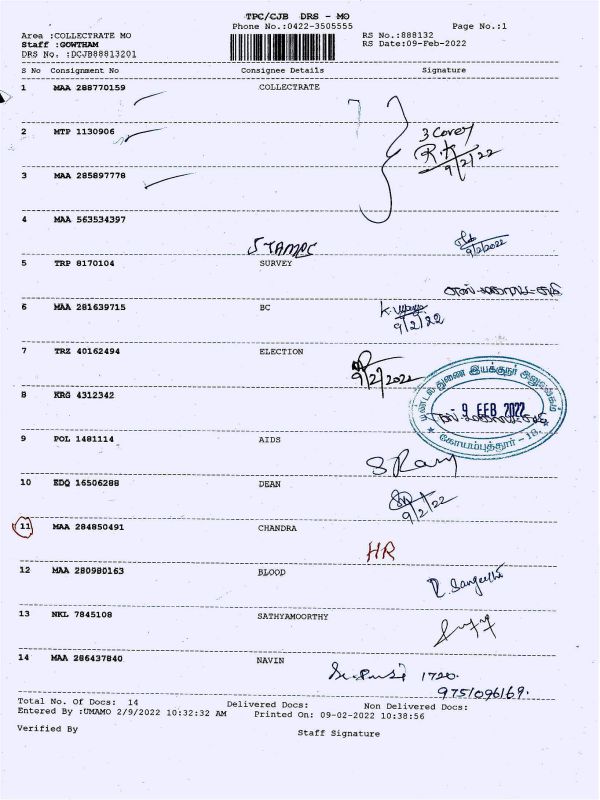 TPC/CJB DRS - MO
Phone No.:0422-3505555 Page No.:1
Area :COLLECTRATE MO RS No.:888132
Staff :GOWTHAM RS Date:09-Feb-2022
DRS No. :DCJB88813201
S No Consignment No Consignee Details Signature
1 MAA 288770159 COLLECTRATE
2 MTP 1130906 3 Cover
9/2/22
3 MAA 285897778
4 MAA 563534397
9/2/2022
STAMPS
5 TRP 8170104 SURVEY
6 MAA 281639715 BC
9/2/22
7 TRZ 40162494 ELECTION
9/2/2022
மண்டல துணை இயக்குநர் அலுவலகம்
9 FEB 2022
கோயம்புத்தூர் - 18.
8 KRG 4312342
9 POL 1481114 AIDS
S Ramy
10 EDQ 16506288 DEAN
9/2/22
11 MAA 284850491 CHANDRA
HR
12 MAA 280980163 BLOOD
R. Sangeetha
13 NKL 7845108 SATHYAMOORTHY
14 MAA 286437840 NAVIN
1720.
9751096169.
Total No. Of Docs: 14 Delivered Docs: Non Delivered Docs:
Entered By :UMAMO 2/9/2022 10:32:32 AM Printed On: 09-02-2022 10:38:56
Verified By Staff Signature